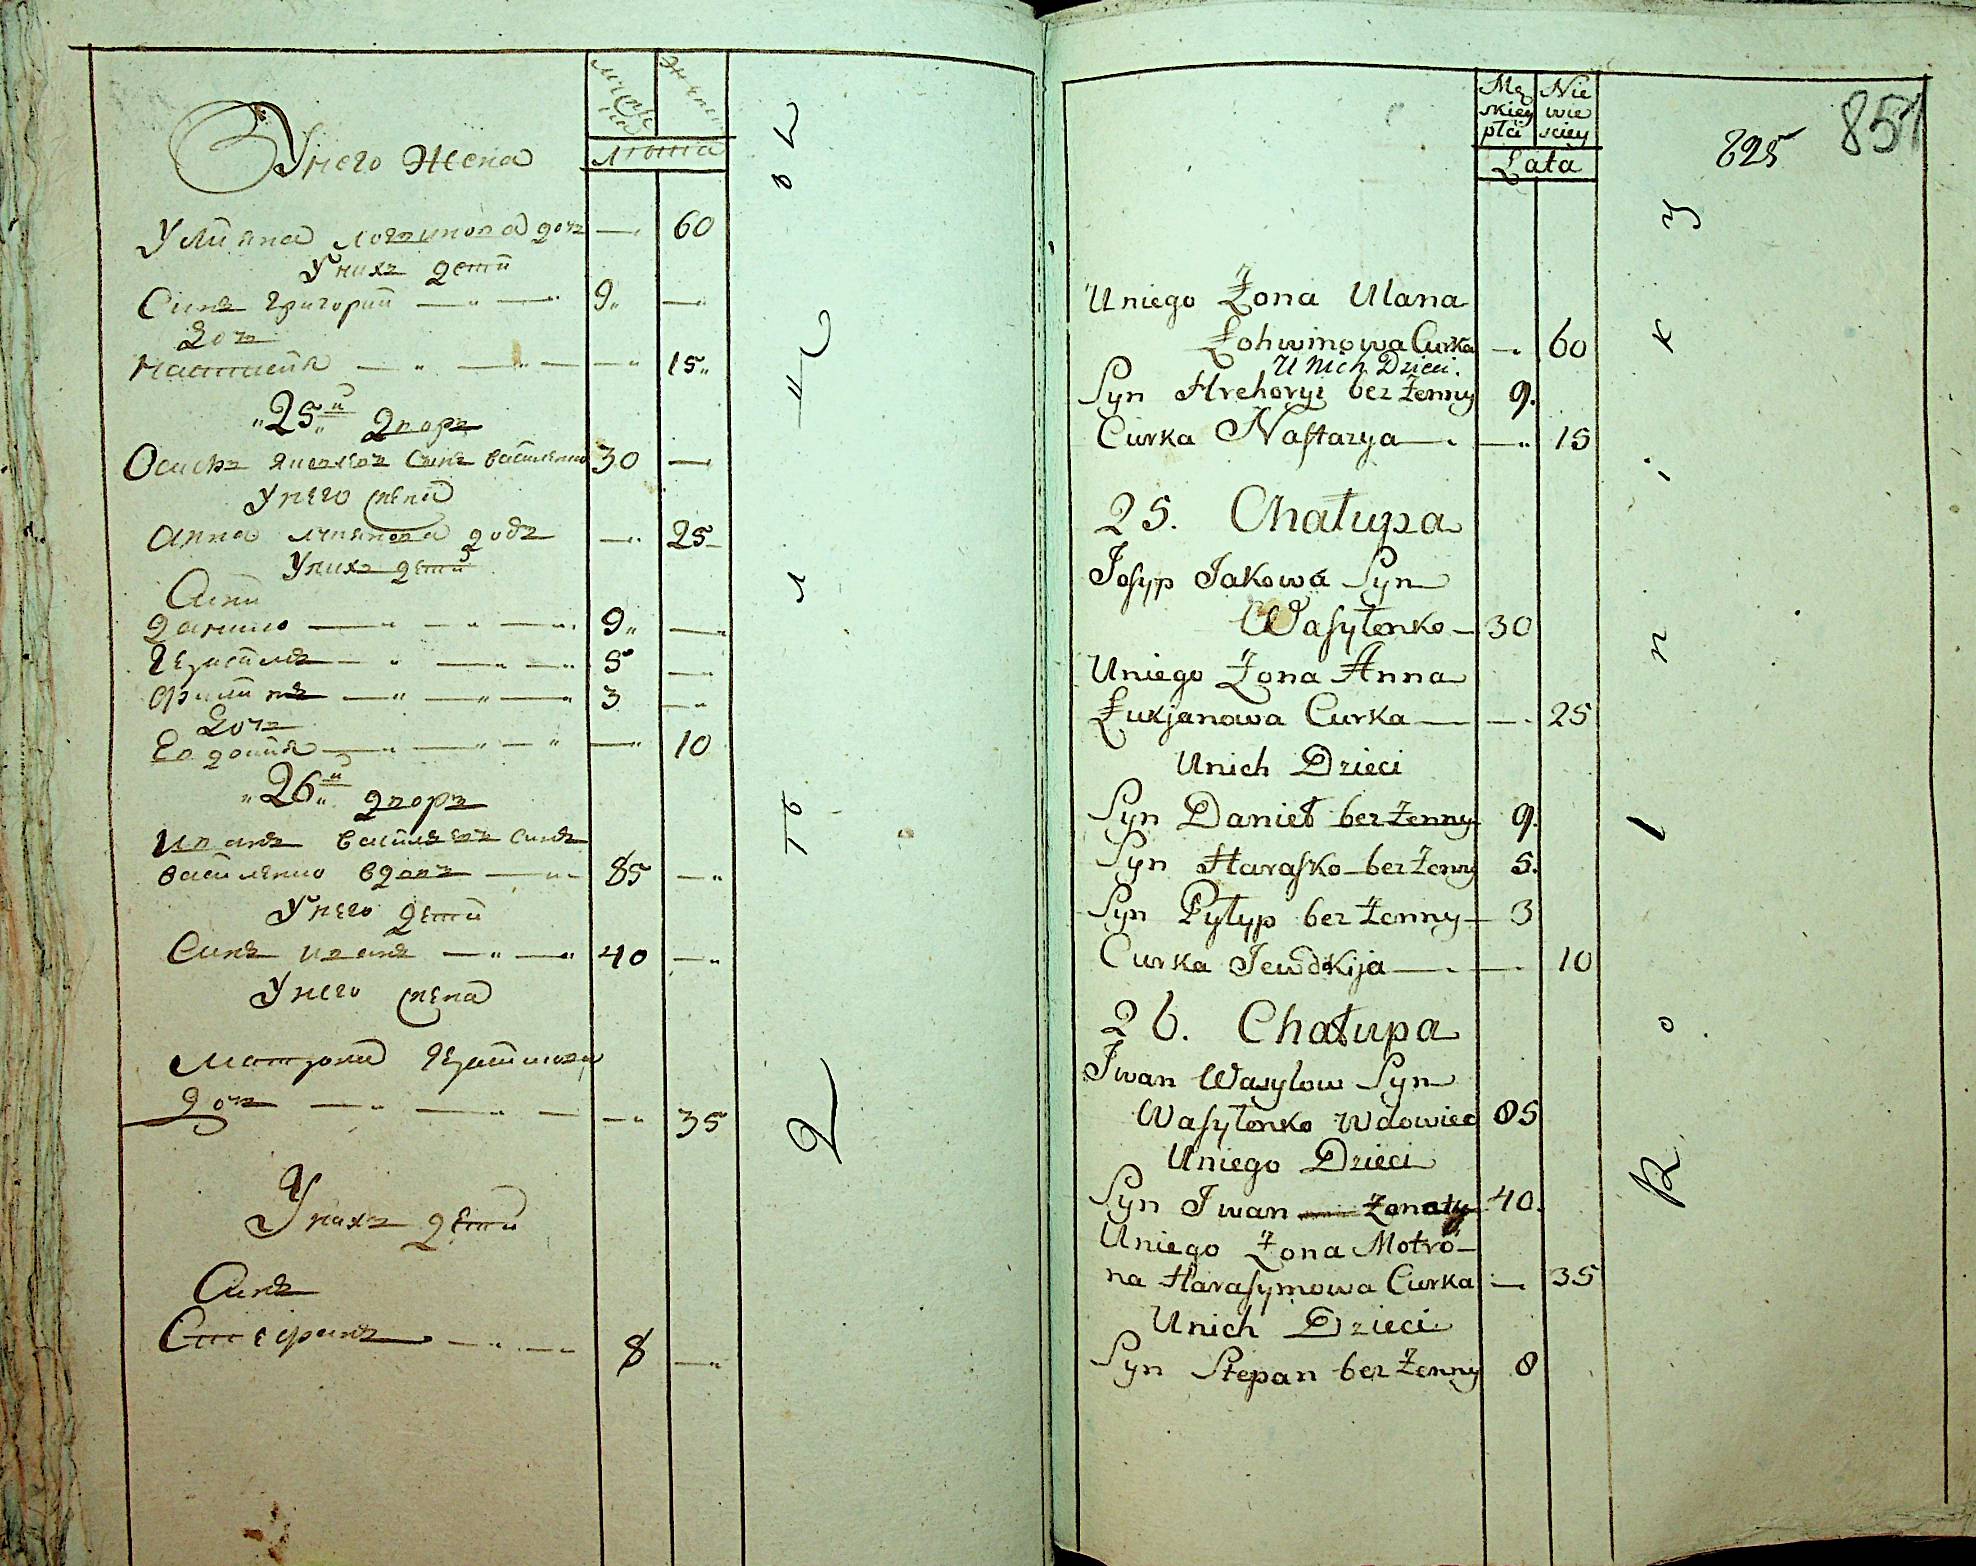 Унего жена
Улияна логвинова доч — 60
Унихъ дети
Синъ григорий — 9 —
Доч
Настасия — 15
25й дворъ
Осипъ яковлевъ синъ василенко 30 —
Унего жена
Анна лукянова дочъ — 25
Унихъ дети
Сини
данило — 9 —
Герасимъ — 5 —
филипъ — 3 —
Доч
Евдокия — 10
26й дворъ
иванъ василевъ синъ
василенко вдовъ — 85 —
Унего дети
Синъ иванъ — 40 —
Унего жена
Матрона Герасимова
доч — 35
Унихъ дети
Синъ
Стефанъ — 8 —
Mę Nie
skiey wie
płci sciey
Lata
825
851
Uniego Żona Ulana
Łohwinowa Curka — 60
U Nich Dzieci.
Syn Hrehoryi bez Żenny 9.
Curka Nastazya — 15
25. Chałupa
Josyp Jakowa Syn
Wasyłenko — 30
Uniego Żona Anna
Łukjanowa Curka — 25
Unich Dzieci
Syn Danieł bez Żenny 9.
Syn Harasko bez Żenny 5.
Syn Pyłyp bez Żenny — 3
Curka Jewdokija — 10
26. Chałupa
Jwan Wasylow Syn
Wasyłenko Wdowiec 85
Uniego Dzieci
Syn Jwan — Żonaty 40.
Uniego Żona Motro-
na Harasymowa Curka — 35
Unich Dzieci
Syn Stepan bez Żenny 8
Rolniky